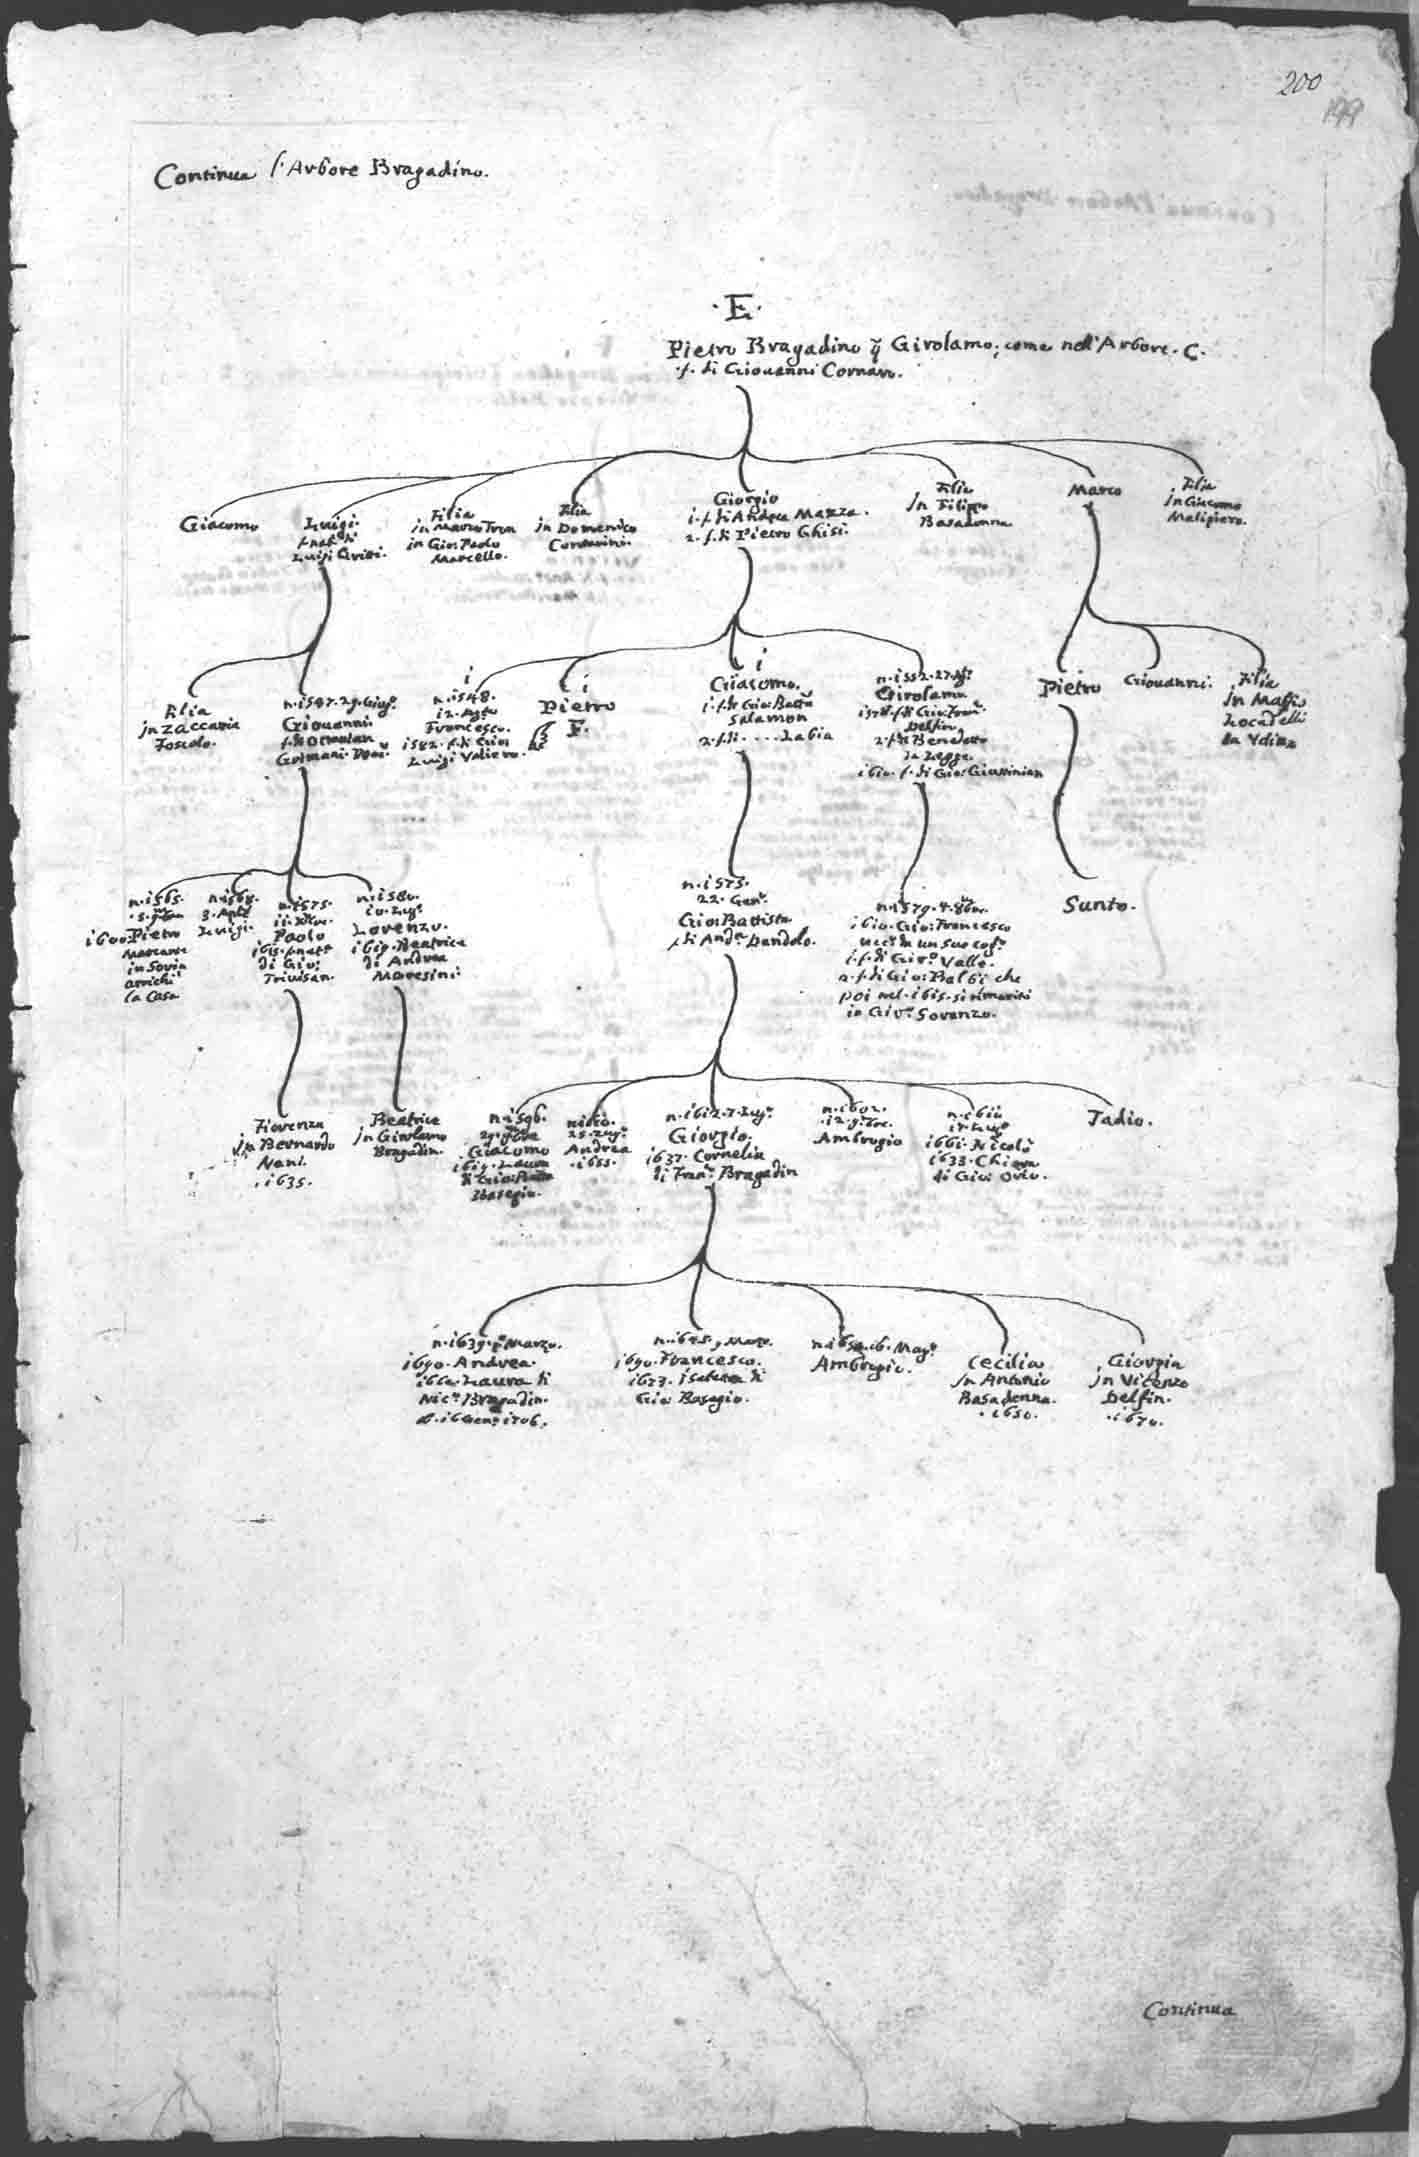 200
199
Continua l'Arbore Bragadino.
·E·
Pietro Bragadino q̃ Girolamo; come nell'Arbore. C.
·f. di Giovanni Cornaro.
Giacomo
Luigi.
Luigi Gritti.
Filia
in Marco Tron
in Gio: Paolo
Marcello.
Filia
in Domenico
Contarini.
Giorgio
i. f. di Andrea Mazza.
2. f. di Pietro Ghisi.
Filia
in Filippo
Basadonna
Marco
Filia
in Giacomo
Malipiero.
Filia
in Zaccaria
Foscolo.
n. 1547. 29. Giugº
Giovanni.
f. di Ottavian
Grimani
i
n. 1548.
12. Agtº
Francesco.
1582. f. di Gian
Luigi Valiero.
i
Pietro
F.
i
Giacomo.
i. f. di Gio: Batta
Salamon
2. f. di .... Labia
n. 1552. 27.
Girolamo
Delfin
2. f. di Benetto
da Lezze.
1610. f. di Gio: Giustinian
Pietro
Giovanni.
Filia
in Maffio
Locadelli
n. 1565.
1600 Pietro
Mercante
in Soria
arrichì
la Casa
n. 1568.
3. Aple
Luigi.
n. 1575.
Paolo
di Gio:
Trivisan.
n. 1580.
10. Lugº
Lorenzo.
1619. Beatrice
di Andrea
Moresini
n. 1575.
22. Genº
Gio: Battista
f. di Andª Dandolo.
n. 1579. 4. 8bre.
1610. Gio: Francesco
ucc. da un suo
i. f. di Girº Valle.
2. f. di Gio: Balbi che
poi nel. 1615. si rimaritò
in Girº Soranzo.
Sunto.
Fiorenza
in Bernardo
Nani.
.1635.
Beatrice
in Girolamo
Bragadin.
n. 1596.
Giacomo
1619. Laura
Basegio.
25. Lugº
Andrea
.1655.
n. 1612. 7. Lugº
Giorgio.
1637. Cornelia
di Franº Bragadin
n. 1602.
Ambrogio
1661. Nicolò
1633. Chiara
di Gio:
Tadio.
n. 1639. Marzo.
1690. Andrea.
1660. Laura di
Nicº Bragadin.
1706.
n. 1645. Marzo.
1690. Francesco.
1673. Isabetta di
Gio: Basegio.
16. Magº
Ambrogio.
Cecilia
in Antonio
Basadonna.
.1650.
Giorgia
in Vicenzo
Delfin.
.1670.
Continua